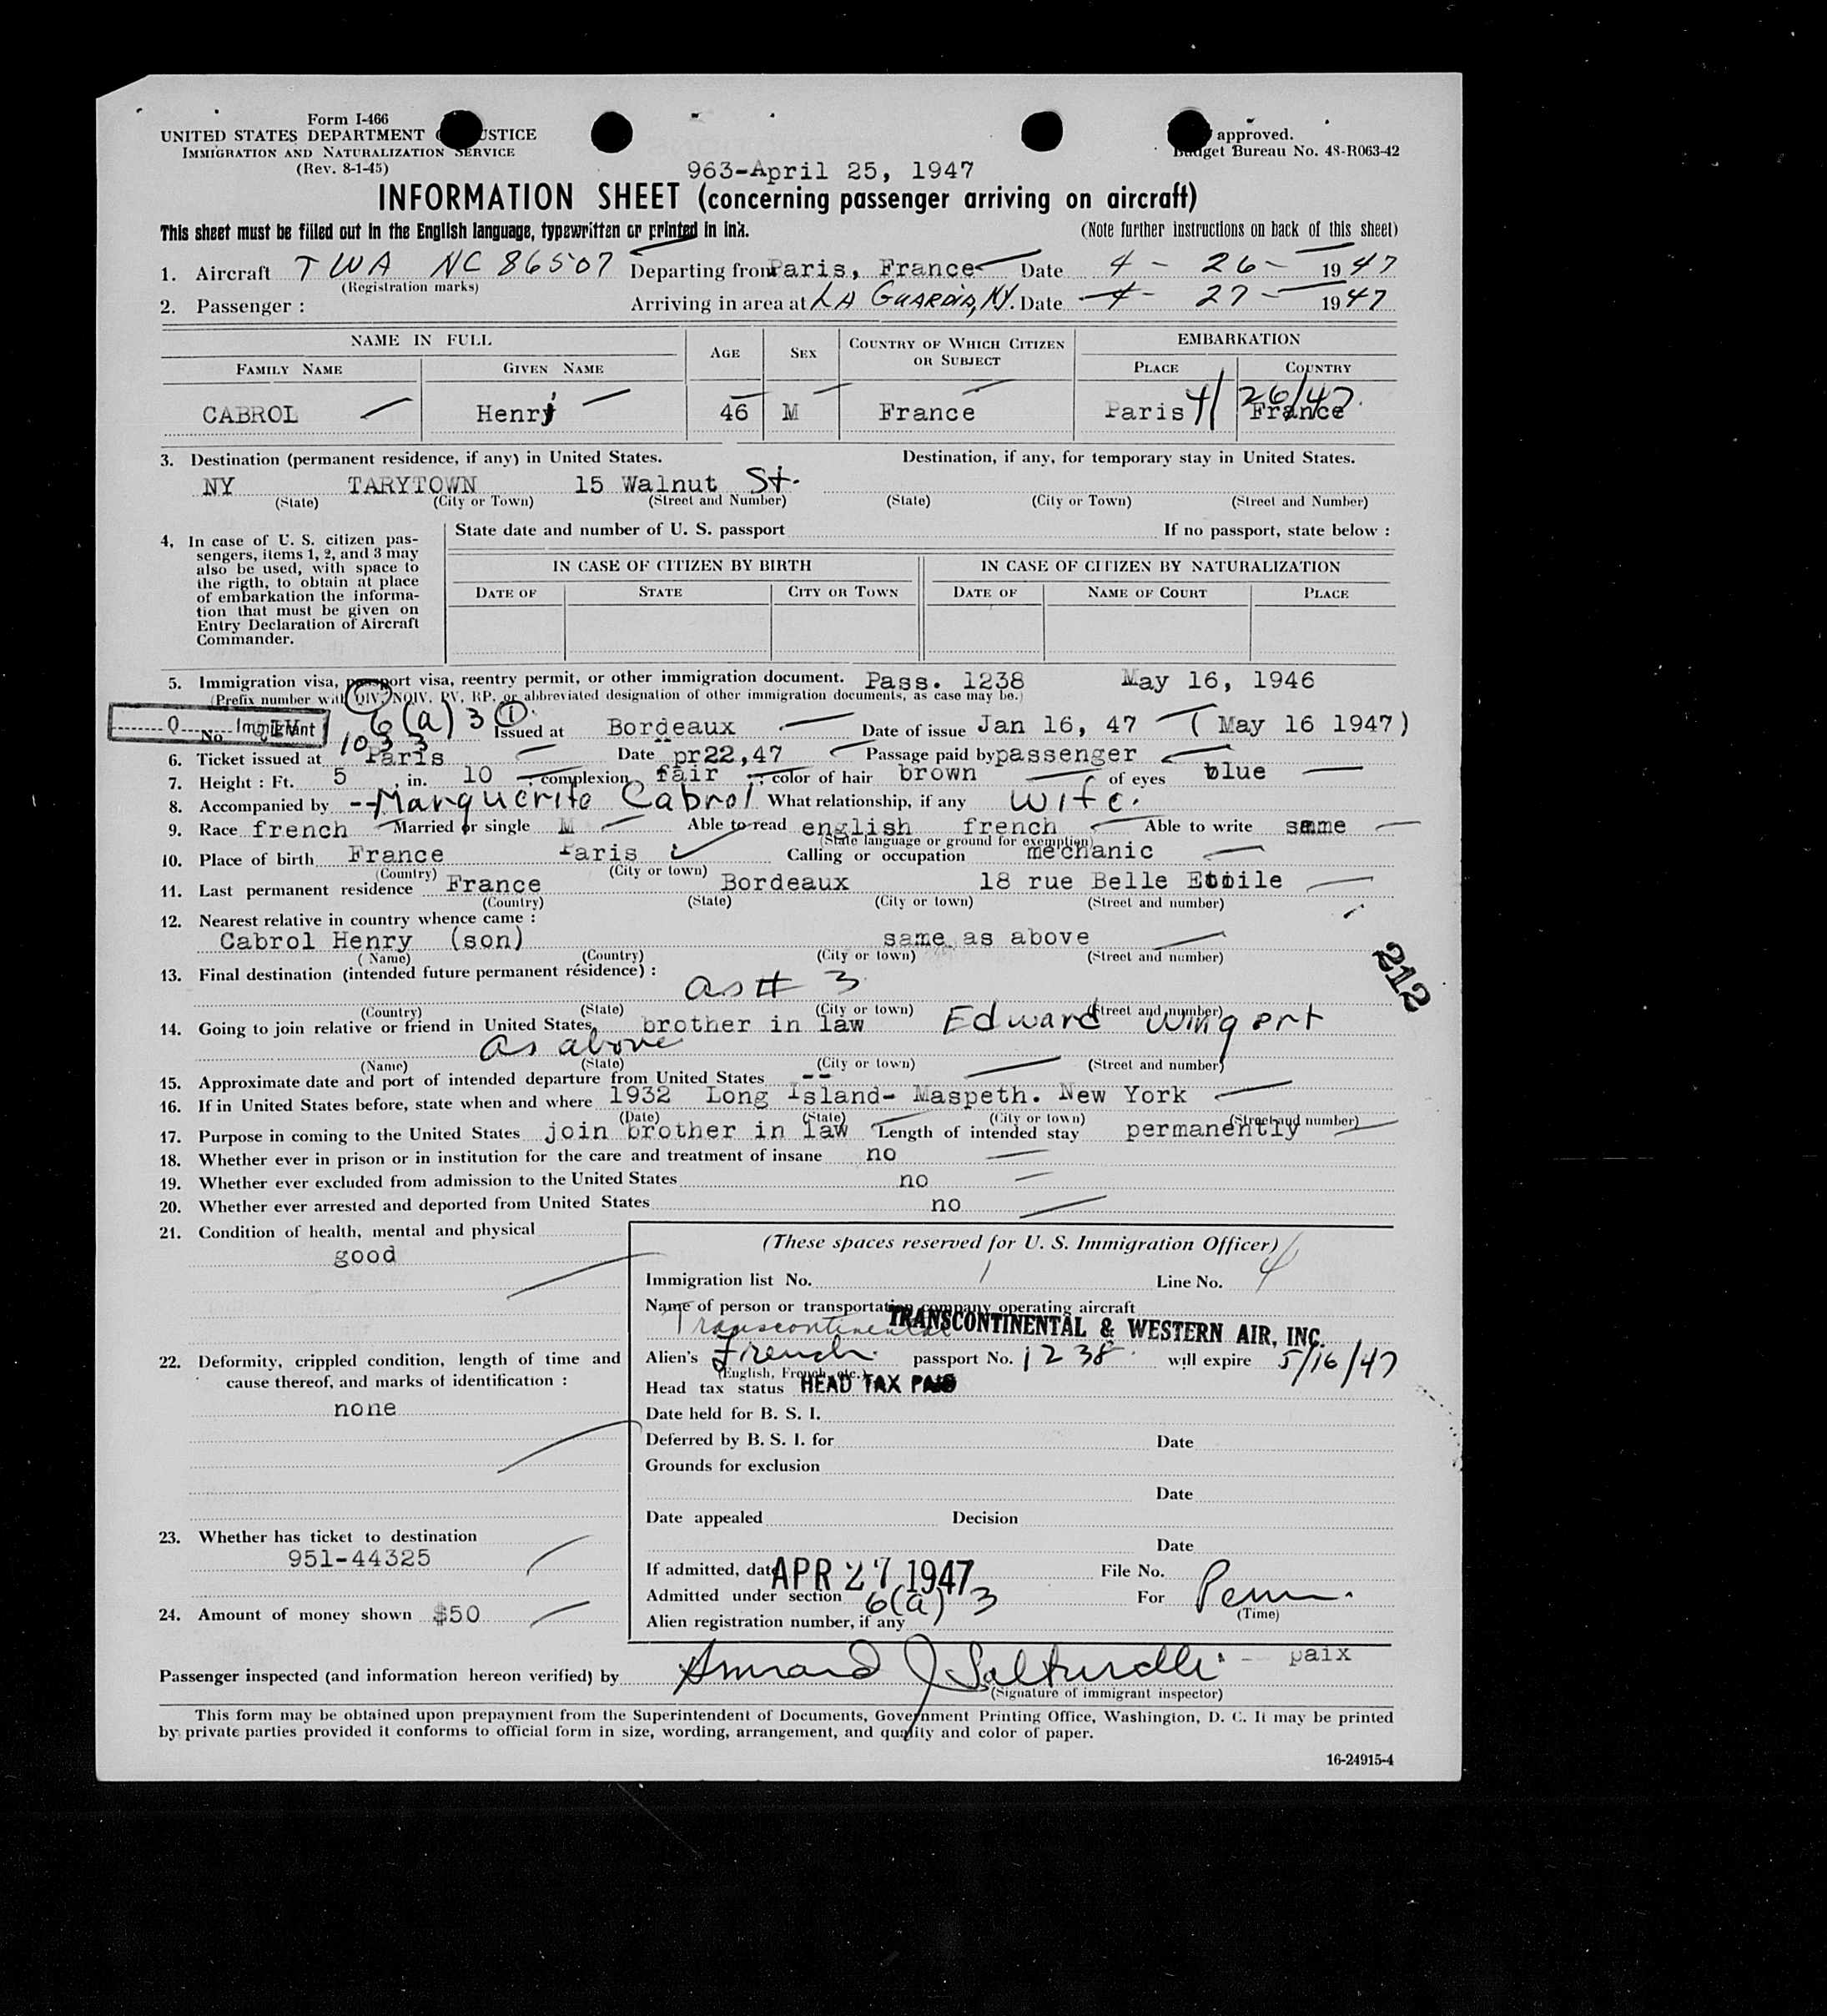 Form I-466
UNITED STATES DEPARTMENT USTICE
IMMIGRATION AND NATURALIZATION SERVICE
(Rev. 8-1-45)
approved.
Budget Bureau No. 43-R063-42
963-April 25, 1947
INFORMATION SHEET (concerning passenger arriving on aircraft)
This sheet must be filled out in the English language, typewritten or printed in ink. (Note further instructions on back of this sheet)
1. Aircraft TWA NC 86507 Departing from Paris, France Date 4 - 26 - 1947
(Registration marks)
2. Passenger : Arriving in area at LA GUARDIA, NY. Date 4 - 27 - 1947
NAME IN FULL AGE SEX COUNTRY OF WHICH CITIZEN OR SUBJECT EMBARKATION
FAMILY NAME GIVEN NAME PLACE COUNTRY
CABROL Henri 46 M France Paris 4/26/47 France
3. Destination (permanent residence, if any) in United States. Destination, if any, for temporary stay in United States.
NY TARYTOWN 15 Walnut St.
(State) (City or Town) (Street and Number) (State) (City or Town) (Street and Number)
4. In case of U. S. citizen pas-
sengers, items 1, 2, and 3 may
also be used, with space to
the rigth, to obtain at place
of embarkation the informa-
tion that must be given on
Entry Declaration of Aircraft
Commander.
State date and number of U. S. passport If no passport, state below :
IN CASE OF CITIZEN BY BIRTH IN CASE OF CITIZEN BY NATURALIZATION
DATE OF STATE CITY OR TOWN DATE OF NAME OF COURT PLACE
5. Immigration visa, passport visa, reentry permit, or other immigration document. Pass. 1238 May 16, 1946
(Prefix number with QIV, NQIV, PV, RP, or abbreviated designation of other immigration documents, as case may be.)
Q Immigrant No. 6(a)3 1 Issued at Bordeaux Date of issue Jan 16, 47 (May 16 1947)
1033
6. Ticket issued at Paris Date pr22,47 Passage paid by passenger
7. Height : Ft. 5 , in. 10 ; complexion fair ; color of hair brown of eyes blue
8. Accompanied by --Marguerite Cabrol What relationship, if any wife.
9. Race french Married or single M Able to read english french Able to write same
(State language or ground for exemption)
10. Place of birth France Paris Calling or occupation mechanic
(Country) (City or town)
11. Last permanent residence France Bordeaux 18 rue Belle Etoile
(Country) (State) (City or town) (Street and number)
12. Nearest relative in country whence came :
Cabrol Henry (son) same as above
(Name) (Country) (City or town) (Street and number)
212
13. Final destination (intended future permanent résidence) :
as # 3
(Country) (State) (City or town) (Street and number)
14. Going to join relative or friend in United States, brother in law Edward Wingert
as above
(Name) (State) (City or town) (Street and number)
15. Approximate date and port of intended departure from United States --
16. If in United States before, state when and where 1932 Long Island- Maspeth. New York
(Date) (State) (City or town) (Street and number)
17. Purpose in coming to the United States join brother in law Length of intended stay permanently
18. Whether ever in prison or in institution for the care and treatment of insane no
19. Whether ever excluded from admission to the United States no
20. Whether ever arrested and deported from United States no
21. Condition of health, mental and physical
good
22. Deformity, crippled condition, length of time and
cause thereof, and marks of identification :
none
23. Whether has ticket to destination
951-44325
24. Amount of money shown $50
(These spaces reserved for U. S. Immigration Officer)
Immigration list No. 1 Line No. 4
Name of person or transportation company operating aircraft
Transcontinental TRANSCONTINENTAL & WESTERN AIR, INC.
Alien's French passport No. 1238 will expire 5/16/47
(English, French, etc.)
Head tax status HEAD TAX PAID
Date held for B. S. I.
Deferred by B. S. I. for Date
Grounds for exclusion
Date
Date appealed Decision
Date
If admitted, date APR 27 1947 File No.
Admitted under section 6(a) 3 For Perm.
(Time)
Alien registration number, if any
paix
Passenger inspected (and information hereon verified) by
(Signature of immigrant inspector)
This form may be obtained upon prepayment from the Superintendent of Documents, Government Printing Office, Washington, D. C. It may be printed
by private parties provided it conforms to official form in size, wording, arrangement, and quality and color of paper.
16-24915-4